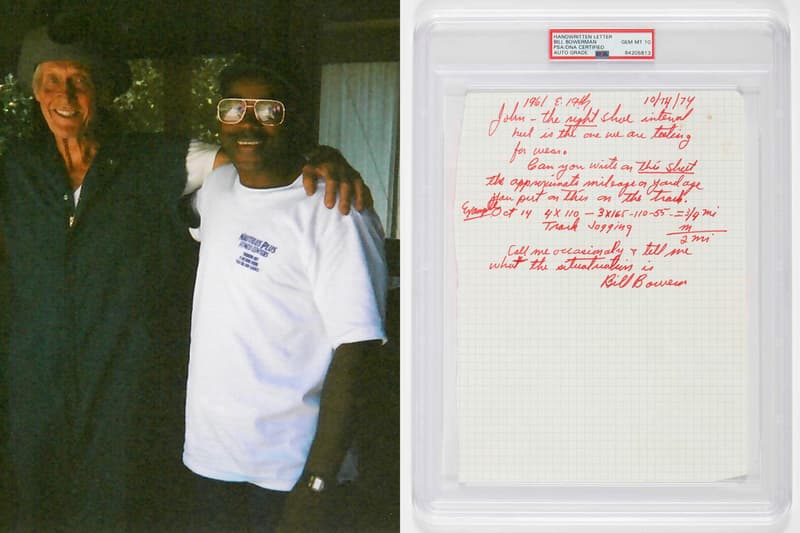 NAUTILUS PLUS
FITNESS CENTERS
HANDWRITTEN LETTER
BILL BOWERMAN
PSA/DNA CERTIFIED
AUTO GRADE
GEM MT 10
84205813
1961 E. 19th 10/14/74
John - the right shoe internal
heel is the one we are testing
for wear.
Can you write on this sheet
the approximate mileage or yardage
you put on this on the track.
Example Oct 14 4x110 - 3x165-110-55 = 3/4 mi
Track Jogging
2 mi
Call me occasionaly & tell me
what the situatuation is
Bill Bowerm